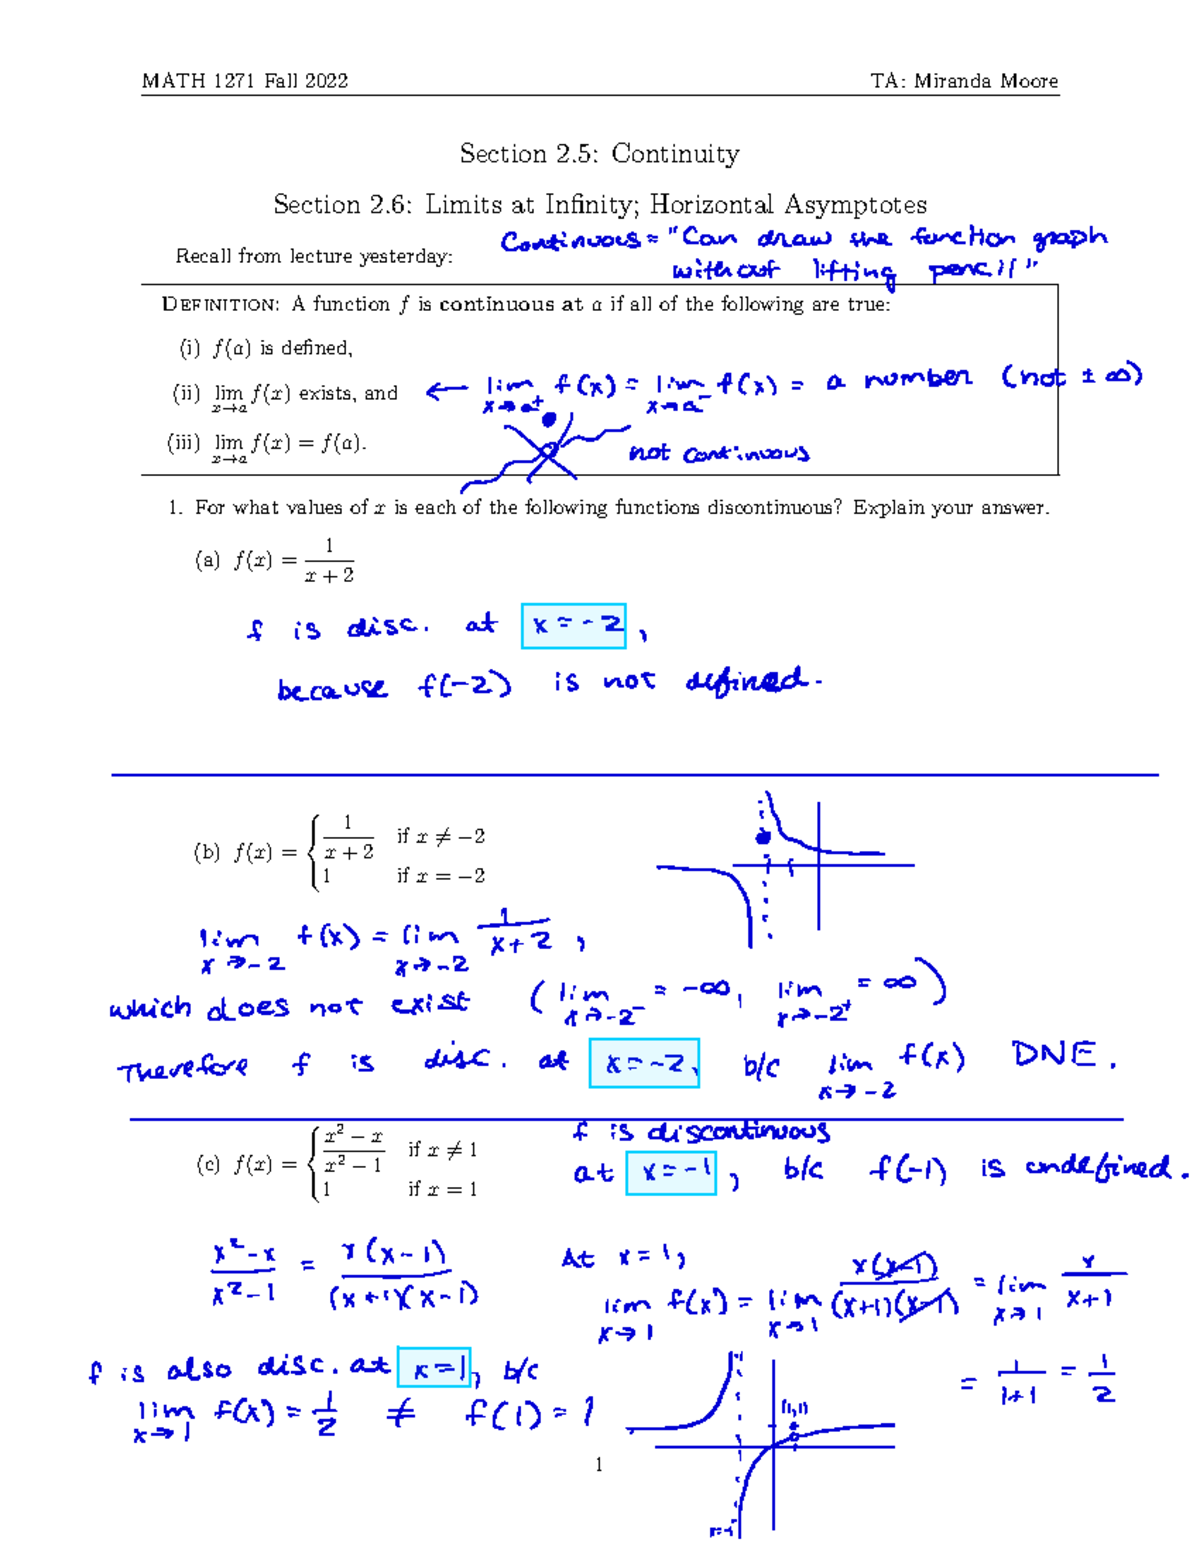 MATH 1271 Fall 2022 TA: Miranda Moore
Section 2.5: Continuity
Section 2.6: Limits at Infinity; Horizontal Asymptotes
Recall from lecture yesterday:
Continuous = "Can draw the function graph
without lifting pencil"
DEFINITION: A function f is continuous at a if all of the following are true:
(i) f(a) is defined,
(ii) lim x→a f(x) exists, and ← lim x→a⁺ f(x) = lim x→a⁻ f(x) = a number (not ± ∞)
(iii) lim x→a f(x) = f(a). not continuous
1. For what values of x is each of the following functions discontinuous? Explain your answer.
(a) f(x) = 1/(x + 2)
f is disc. at x = -2,
because f(-2) is not defined.
(b) f(x) = { 1/(x + 2) if x ≠ −2
1 if x = −2
lim x→-2 f(x) = lim x→-2 1/(x+2),
which does not exist (lim x→-2⁻ = -∞, lim x→-2⁺ = ∞)
Therefore f is disc. at x = -2, b/c lim x→-2 f(x) DNE.
(c) f(x) = { (x² − x)/(x² − 1) if x ≠ 1
1 if x = 1
f is discontinuous
at x = -1, b/c f(-1) is undefined.
(x²-x)/(x²-1) = x(x-1)/((x+1)(x-1))
At x = 1,
lim x→1 f(x) = lim x→1 x(x-1)/((x+1)(x-1)) = lim x→1 x/(x+1)
= 1/(1+1) = 1/2
f is also disc. at x = 1, b/c
lim x→1 f(x) = 1/2 ≠ f(1) = 1
(1,1)
x=-1
1